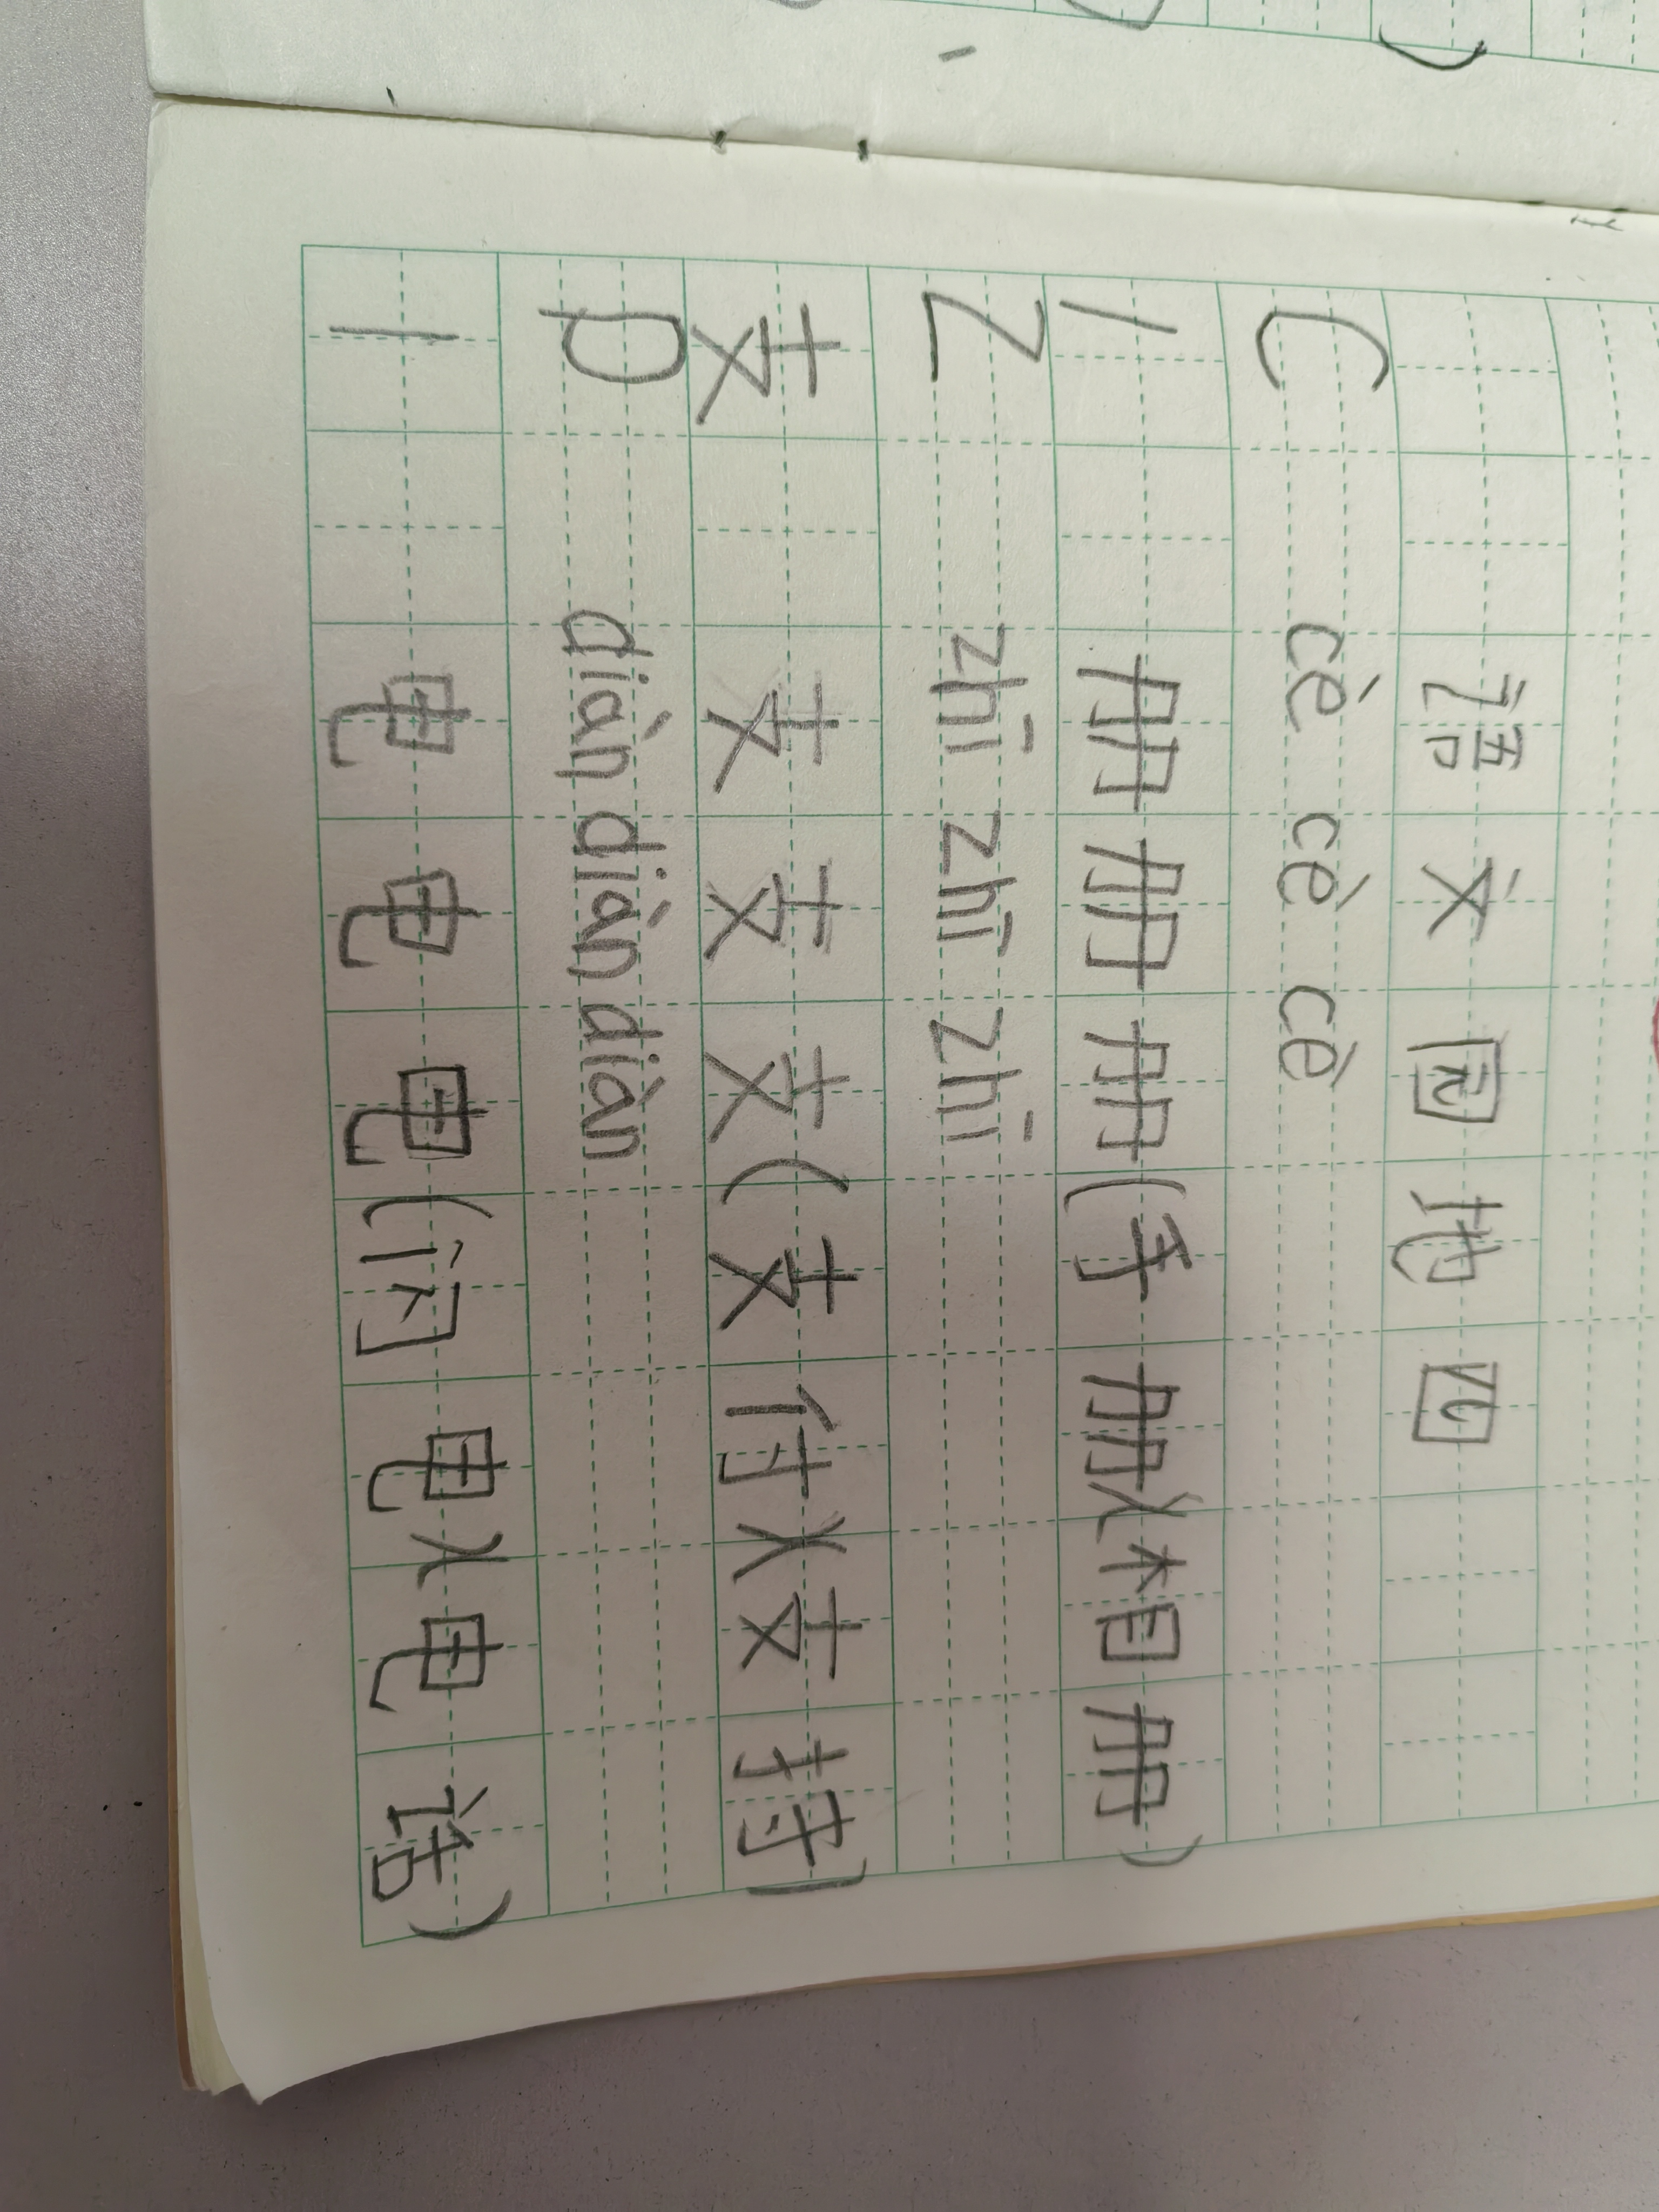 语文园地四
C cè cè cè
丿 册册册(手册)(相册)
Z zhī zhī zhī
支 支支支(支付)(支持)
D diàn diàn diàn
丨 电电电(闪电)(电话)